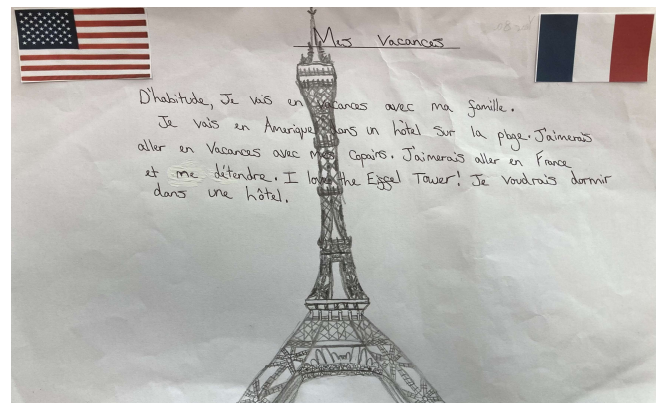 Mes Vacances
D'habitude, Je vais en vacances avec ma famille.
Je vais en Amarique dans un hôtel sur la plage. J'aimerais
aller en Vacances avec mes Copairs. J'aimerais aller en France
et me détendre. I love the Eiffel Tower! Je voudrais dormir
dans une hôtel.